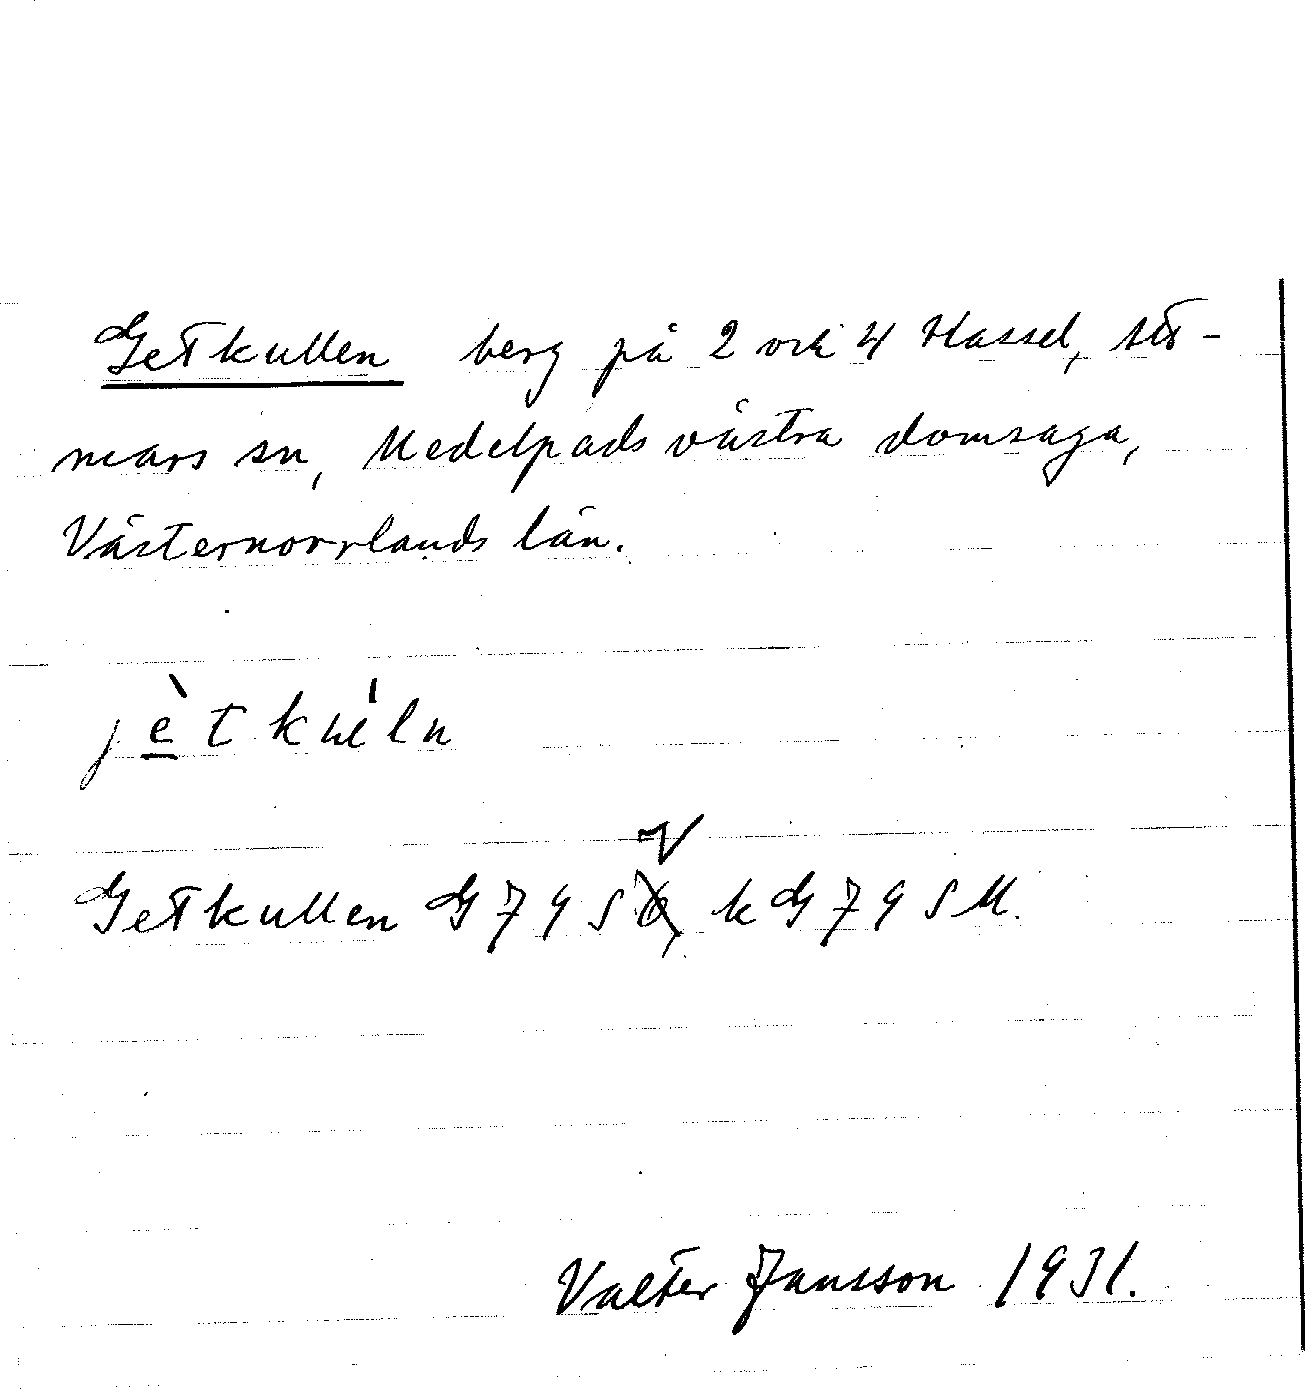 Getkullen berg på 2 och 4 Hassel, Att-
mars sn, Medelpads västra domsaga,
Västernorrlands län.
jètkùln
Getkullen G 79 S V, k G 79 S M.
Valter Jansson 1931.